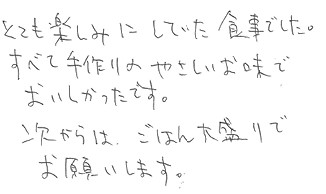 とても楽しみにしていた食事でした。
すべて手作りのやさしいお味で
おいしかったです。
次からは、ごはん大盛りで
お願いします。